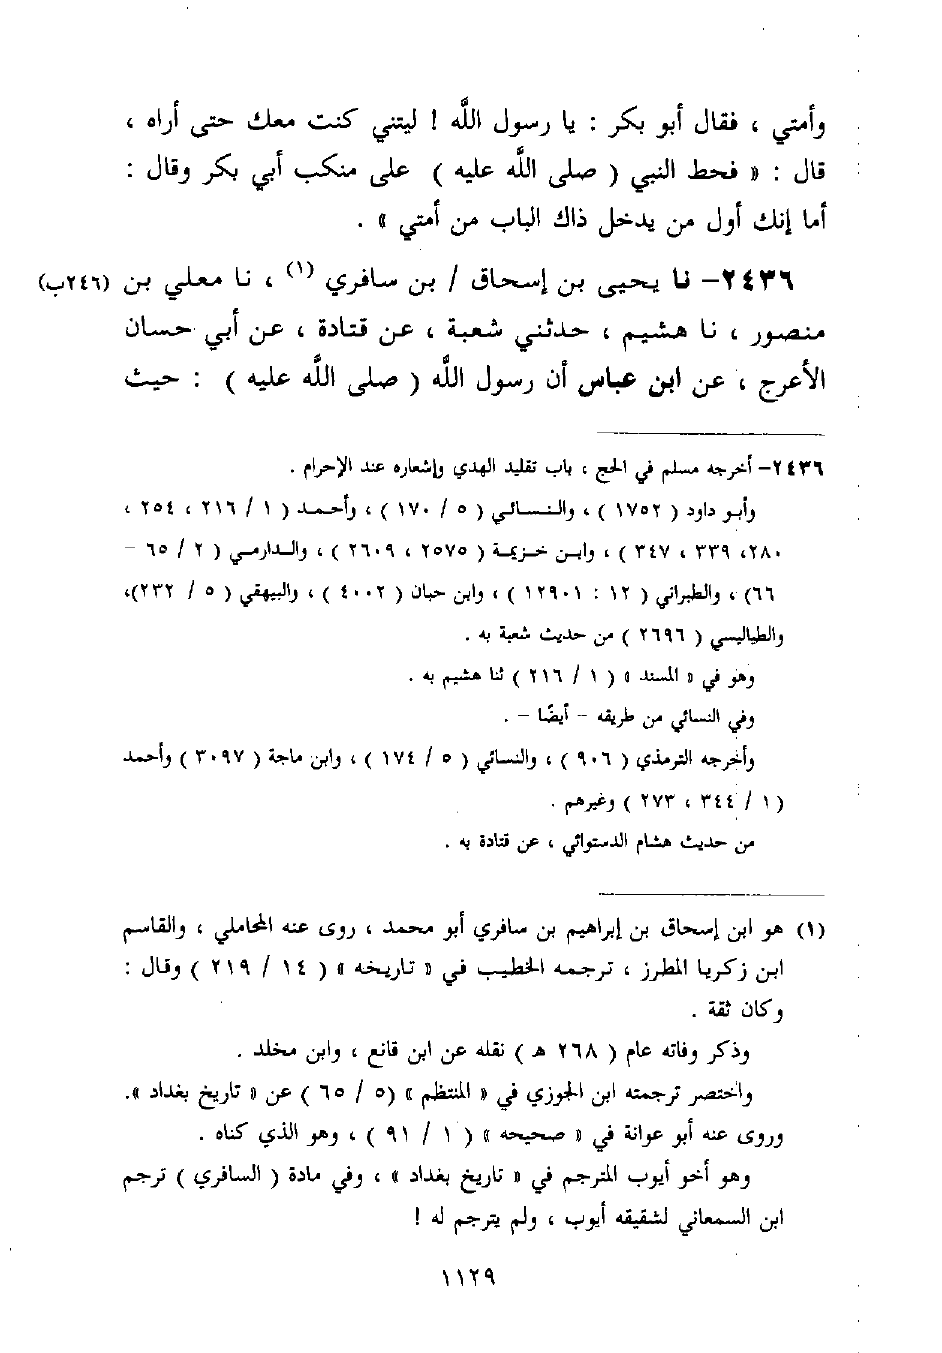 وأمتي ، فقال أبو بكر : يا رسول اللَّه ! ليتني كنت معك حتى أراه ،
قال : « فحط النبي ( صلى اللَّه عليه ) على منكب أبي بكر وقال :
أما إنك أول من يدخل ذاك الباب من أمتي » .
٢٤٣٦– نا يحيى بن إسحاق / بن سافري (١) ، نا معلي بن (٢٤٦ب)
منصور ، نا هشيم ، حدثني شعبة ، عن قتادة ، عن أبي حسان
الأعرج ، عن ابن عباس أن رسول اللَّه ( صلى اللَّه عليه ) : حيث
٢٤٣٦– أخرجه مسلم في الحج ، باب تقليد الهدي وإشعاره عند الإحرام .
وأبو داود ( ١٧٥٢ ) ، والنسائي ( ٥ / ١٧٠ ) ، وأحمد ( ١ / ٢١٦ ، ٢٥٤ ،
٢٨٠، ٣٣٩ ، ٣٤٧ ) ، وابن خزيمة ( ٢٥٧٥ ، ٢٦٠٩ ) ، والدارمي ( ٢ / ٦٥ –
٦٦) ، والطبراني ( ١٢ : ١٢٩٠١ ) ، وابن حبان ( ٤٠٠٢ ) ، والبيهقي ( ٥ / ٢٣٢)،
والطياليسي ( ٢٦٩٦ ) من حديث شعبة به .
وهو في « المسند » ( ١ / ٢١٦ ) ثنا هشيم به .
وفي النسائي من طريقه – أيضًا – .
وأخرجه الترمذي ( ٩٠٦ ) ، والنسائي ( ٥ / ١٧٤ ) ، وابن ماجة ( ٣٠٩٧ ) وأحمد
( ١ / ٣٤٤ ، ٢٧٣ ) وغيرهم .
من حديث هشام الدستوائي ، عن قتادة به .
(١) هو ابن إسحاق بن إبراهيم بن سافري أبو محمد ، روى عنه المحاملي ، والقاسم
ابن زكريا المطرز ، ترجمه الخطيب في « تاريخه » ( ١٤ / ٢١٩ ) وقال :
وكان ثقة .
وذكر وفاته عام ( ٢٦٨ هـ ) نقله عن ابن قانع ، وابن مخلد .
واختصر ترجمته ابن الجوزي في « المنتظم » (٥ / ٦٥ ) عن « تاريخ بغداد ».
وروى عنه أبو عوانة في « صحيحه » ( ١ / ٩١ ) ، وهو الذي كناه .
وهو أخو أيوب المترجم في « تاريخ بغداد » ، وفي مادة ( السافري ) ترجم
ابن السمعاني لشقيقه أيوب ، ولم يترجم له !
١١٢٩